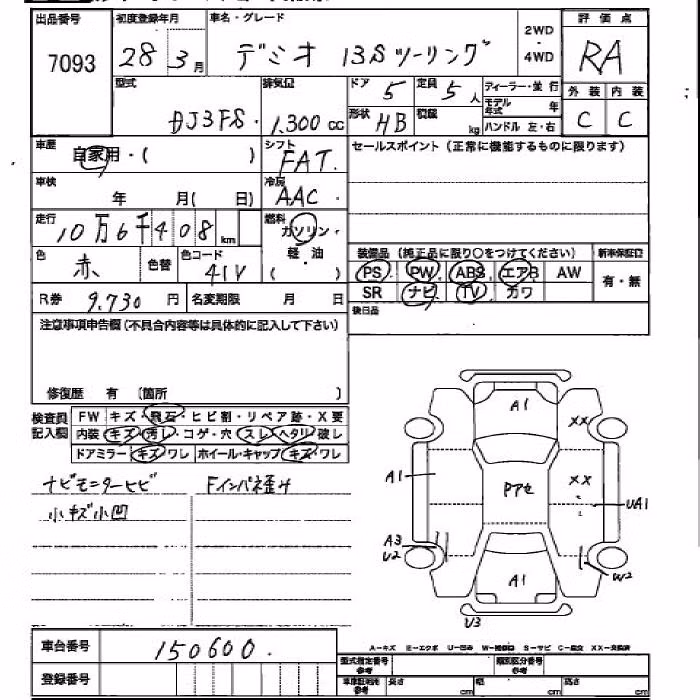 出品番号 初度登録年月 車名・グレード 2WD・4WD 評価点
7093 28 3月 デミオ 13Sツーリング RA
型式 排気量 ドア 5 定員 5人 ディーラー・並行 外装 内装
DJ3FS 1,300cc 形状 HB 積載 kg モデル年式 年 C C
ハンドル 左・右
車歴 自家用・( ) シフト FAT セールスポイント(正常に機能するものに限ります)
車検 年 月( 日) 冷房 AAC
走行 10万6千408km 燃料 ガソリン・軽・油( )
色 赤 色替 色コード 41V
装備品(純正品に限り○をつけてください) 新車保証書
PS PW ABS エアB AW 有・無
SR ナビ TV カワ
R券 9,730円 名変期限 月 日 後日品
注意事項申告欄(不具合内容等は具体的に記入して下さい)
修復歴 有 (箇所 )
検査員記入欄 FW キズ・飛石・ヒビ割・リペア跡・X要
内装 キズ・汚レ・コゲ・穴 スレ・ヘタリ・破レ
ドアミラー キズ・ワレ ホイール・キャップ キズ・ワレ
ナビモニターヒビ Fインパネ歪み
小キズ小凹
A1 XX
A1 Pアセ XX
UA1
A3
U2
A1 W2
U3
車台番号 150600
登録番号
A-キズ E-エクボ U-凹み W-補修跡 S-サビ C-腐食 XX-交換済
型式指定番号 参考 類別区分番号 参考
車庫証明用 参考 長さ cm 幅 cm 高さ cm